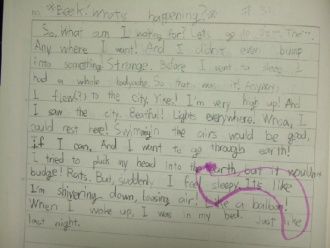 "Eeek! What's happening?"
So, what am I waiting for? Let's go
Any where I want! And I didn't even bump
into something. Strange. Before I went to sleep,
had a whole bodyache. So that was it!
I fly to the city. Yikes! I'm very high up! And
I saw the city. Beatiful! Lights everywhere. Whoa, I
could rest here! Swimmin the airs would be good,
if I can. And I want to go through earth!
I tried to push my head into the earth, but it wouldn't
budge! Rats. But, suddenly, I feel sleepy. It's like
I'm shivering down, lousing air! Like a balloon.
When I woke up, I was in my bed. Just like
last night.